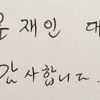 문재인 대
감사합니다.